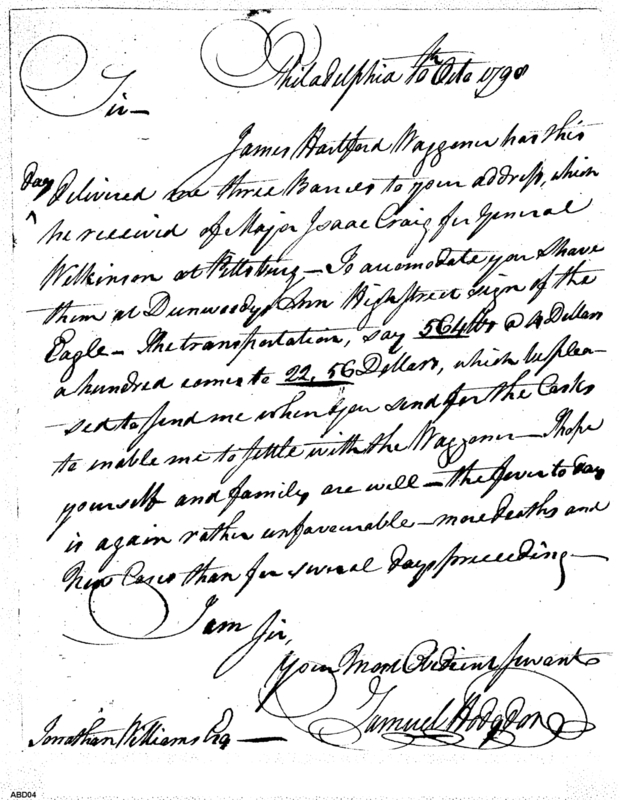 Philadelphia 10th Octo 1798
Sir—
James Hartford Waggoner has this
day
^ Delivered me three Barrels to your address, which
he received of Major Isaac Craig for General
Wilkinson at Pittsburg — To accomodate you I have
them at Dunwoodys Inn High street sign of the
Eagle — The transportation, say 564 lbs @ 4 Dollars
a hundred comes to 22,56 Dollars, which be plea-
-sed to send me when you send for the Casks
to enable me to settle with the Waggoner — I hope
yourself and family are well — the fever to day
is again rather unfavourable — more deaths and
New Cases than for several days preceeding —
I am Sir,
Your Most Obedient Servant
Samuel Hodgdon
Jonathan Williams Esq —
ABD04